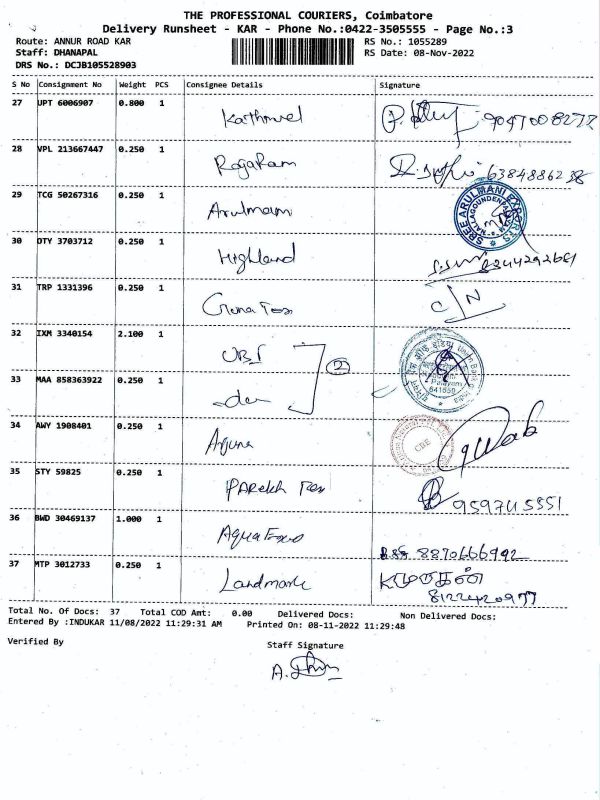 THE PROFESSIONAL COURIERS, Coimbatore
Delivery Runsheet - KAR - Phone No.:0422-3505555 - Page No.:3
Route: ANNUR ROAD KAR RS No.: 1055289
Staff: DHANAPAL RS Date: 08-Nov-2022
DRS No.: DCJB105528903
S No Consignment No Weight PCS Consignee Details Signature
27 UPT 6006907 0.800 1 9047008272
28 VPL 213667447 0.250 1 Rogaram 6384886238
29 TCG 50267316 0.250 1 Arulmani SREE ARULMANI EXPORTS
30 DTY 3703712 0.250 1 Highland 8344292661
31 TRP 1331396 0.250 1 C/N
32 IXM 3340154 2.100 1 UBI 2 Union Bank of India 641659
33 MAA 858363922 0.250 1
34 AWY 1908401 0.250 1 Arjuna CBE
35 STY 59825 0.250 1 Parekh Tex 9597415551
36 BWD 30469137 1.000 1 8870666942
37 MTP 3012733 0.250 1 Landmark
8122420977
Total No. Of Docs: 37 Total COD Amt: 0.00 Delivered Docs: Non Delivered Docs:
Entered By :INDUKAR 11/08/2022 11:29:31 AM Printed On: 08-11-2022 11:29:48
Verified By Staff Signature